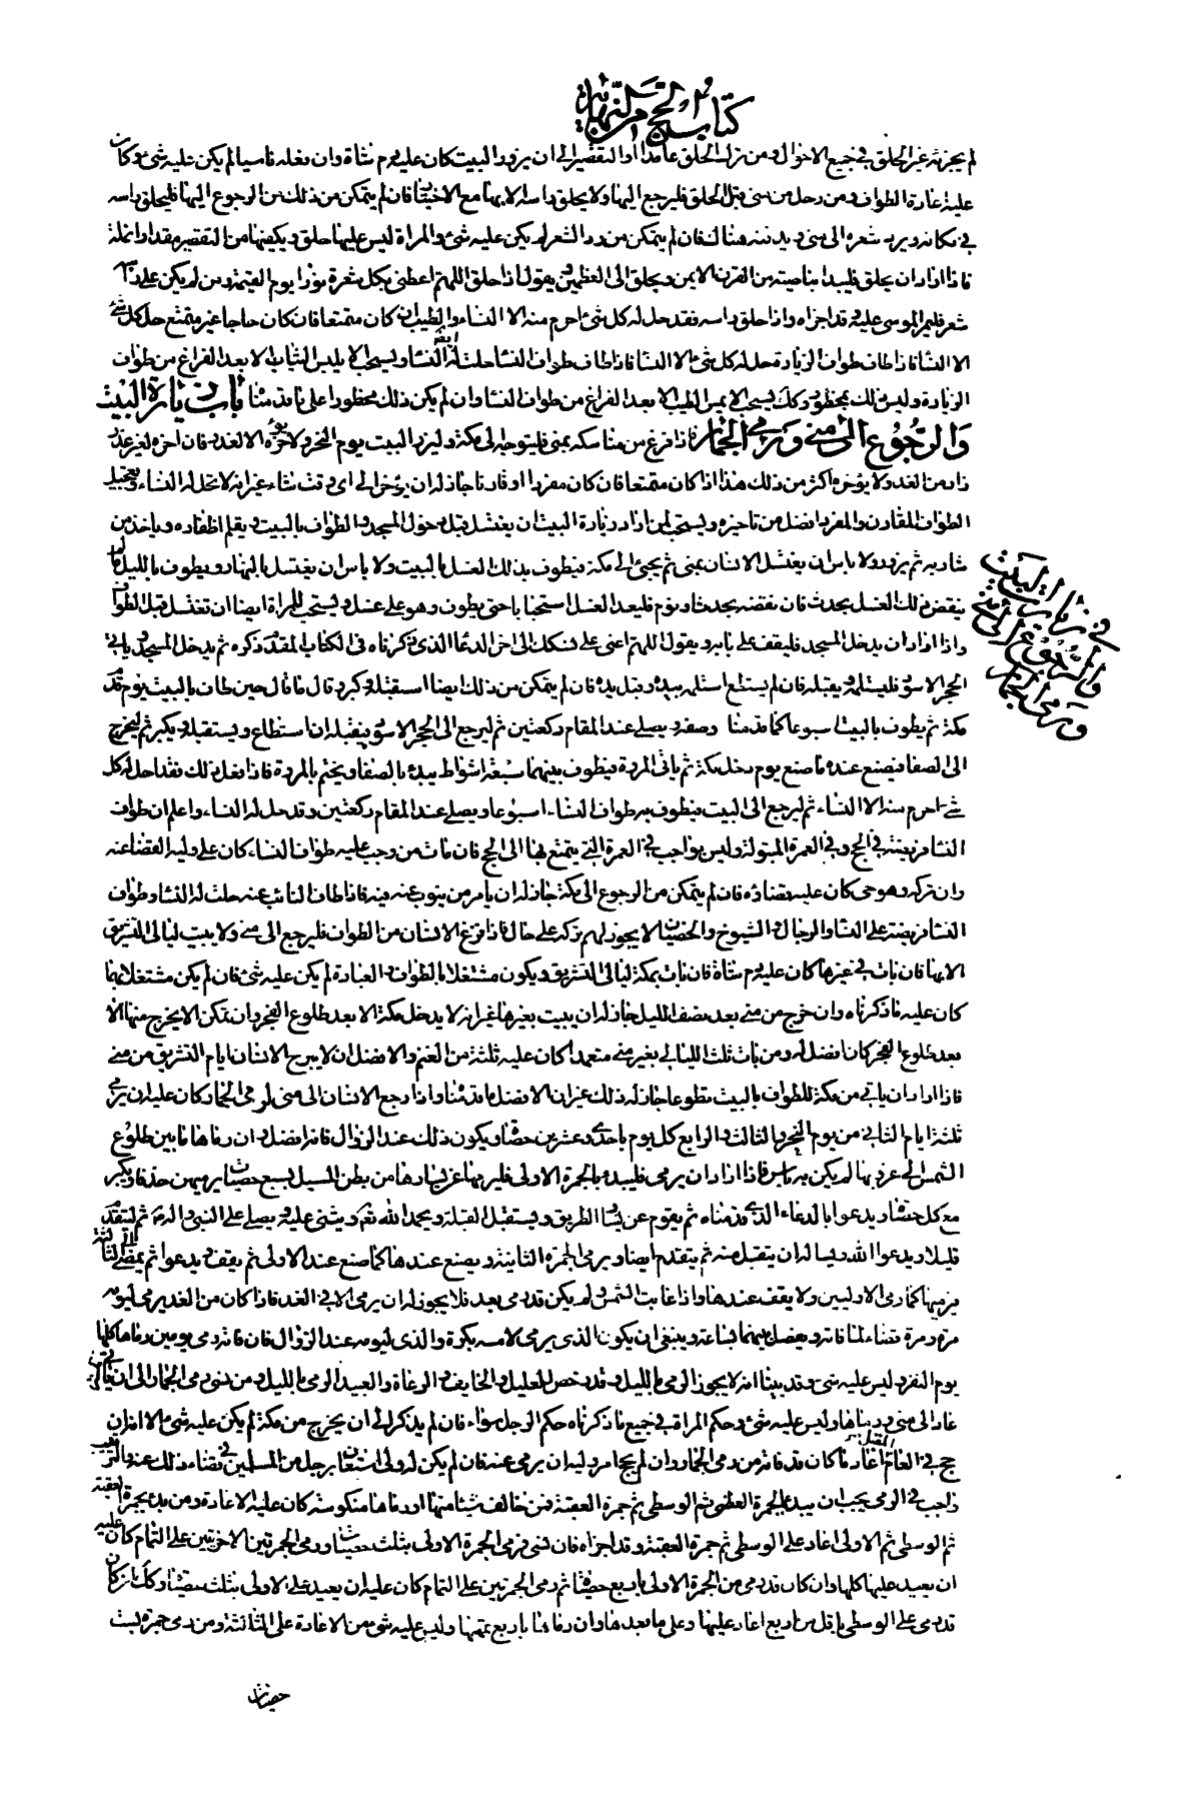 كتاب الحج من النهاية
لم يجزئه غير الحلق في جميع الاحوال ومن ترك الحلق عامدا او التقصير الى ان يزور البيت كان عليه دم شاة وان فعله ناسيا لم يكن عليه شئ وكان
عليه اعادة الطواف ومن رحل من منى قبل الحلق فليرجع اليها ولا يحلق راسه الا بها مع الاختيار فان لم يتمكن من ذلك من الرجوع اليها فليحلق راسه
في مكانه ويرد شعره الى منى ويدفنه هناك فان لم يتمكن من رد الشعر لم يكن عليه شئ والمراة ليس عليها حلق ويكفيها من التقصير مقدار انملة
فاذا اراد ان يحلق فليبدا بناصيته من القرن الايمن ويحلق الى العظمين ويقول اذا حلق اللهم اعطني بكل شعرة نورا يوم القيمة ومن لم يكن على راسه
شعر فليمر الموسى عليه وقد اجزاه واذا حلق راسه فقد حل له كل شئ احرم منه الا النساء والطيب ان كان متمتعا فان كان حاجا غير متمتع حل كل شئ
الا النسا فاذا طاف طواف الزيارة حل له كل شئ الا النسا فاذا طاف طواف النسا حلت له ايضا النسا ويستحب الا يلبس الثياب الا بعد الفراغ من طواف
الزيارة وليس ذلك بمحظور وكذلك يستحب الا يمس الطيب الا بعد الفراغ من طواف النسا وان لم يكن ذلك محظورا على ما قدمنا باب زيارة البيت
والرجوع الى منى ورمي الجمار فاذا فرغ من مناسكه بمنى فليتوجه الى مكة وليزر البيت يوم النحر ولا يؤخره الا لعذر فان اخره لغير عذر
زار من الغد ولا يؤخره اكثر من ذلك هذا اذا كان متمتعا فان كان مفردا او قارنا جاز له ان يؤخر الى اي وقت شاء غير انه لا تحل له النساء وتعجيل
الطواف للقارن والمفرد افضل من تاخيره ويستحب لمن اراد زيارة البيت ان يغتسل قبل دخول المسجد والطواف بالبيت ويقلم اظفاره وياخذ من
شاربه ثم يزور ولا باس ان يغتسل الانسان بمنى ثم يجئ الى مكة فيطوف بذلك الغسل بالبيت ولا باس ان يغتسل بالنهار ويطوف بالليل ما لم
ينقض ذلك الغسل بحدث فان نقضه بحدث او نوم فليعد الغسل استحبابا حتى يطوف وهو على غسل ويستحب للمراة ايضا ان تغتسل قبل الطواف
واذا اراد ان يدخل المسجد فليقف على بابه ويقول اللهم اعني على نسكك الى اخر الدعا الذي ذكرناه في الكتاب المقدم ذكره ثم يدخل المسجد وياتي
الحجر الاسود فليستلمه ويقبله فان لم يستطع استلمه بيده وقبل يده فان لم يتمكن من ذلك ايضا استقبله وكبر وقال ما قال حين طاف بالبيت يوم قدم
مكة ثم يطوف بالبيت اسبوعا كما قدمنا وصفه ويصلي عند المقام ركعتين ثم ليرجع الى الحجر الاسود فيقبله ان استطاع ويستقبله ويكبر ثم ليخرج
الى الصفا فيصنع عنده ما صنع يوم دخل مكة ثم ياتي المروة فيطوف بينهما سبعة اشواط يبدء بالصفا ويختم بالمروة فاذا فعل ذلك فقد احل له كل
شئ احرم منه الا النساء ثم ليرجع الى البيت فيطوف به طواف النساء اسبوعا ويصلي عند المقام ركعتين وقد حل له النساء واعلم ان طواف
النسا فريضة في الحج وفي العمرة المبتولة وليس بواجب في العمرة التي يتمتع بها الى الحج فان مات من وجب عليه طواف النساء كان على وليه القضاء عنه
وان تركه وهو حي كان عليه قضاؤه فان لم يتمكن من الرجوع الى مكة جاز له ان يامر من ينوب عنه فيه فاذا طاف النائب عنه حلت له النسا وطواف
النسا فريضة على النسا والرجال والشيوخ والخصيان لا يجوز لهم تركه على حال فاذا فرغ الانسان من الطواف فليرجع الى منى ولا يبيت ليالي التشريق
الا بها فان بات في غيرها كان عليه دم شاة فان بات بمكة ليالي التشريق ويكون مشتغلا بالطواف والعبادة لم يكن عليه شئ فان لم يكن مشتغلا بهما
كان عليه ما ذكرناه وان خرج من منى بعد نصف الليل جاز له ان يبيت بغيرها غير انه لا يدخل مكة الا بعد طلوع الفجر وان تمكن الا يخرج منها الا
بعد طلوع الفجر كان افضل له ومن بات ثلث الليالي بغير منى متعمدا كان عليه ثلثة من الغنم والافضل ان لا يبرح الانسان ايام التشريق من منى
فاذا اراد ان ياتي من مكة للطواف بالبيت تطوعا جاز له ذلك غير ان الافضل ما قدمناه واذا رجع الانسان الى منى لرمي الجمار كان عليه ان يرمي
ثلثة ايام الثاني من يوم النحر والثالث والرابع كل يوم باحدى وعشرين حصاة ويكون ذلك عند الزوال فانه افضل وان رماها ما بين طلوع
الشمس الى غروبها لم يكن به باس فاذا اراد ان يرمي فليبدء بالجمرة الاولى فليرمها عن يسارها من بطن المسيل بسبع حصيات يرميهن حذفا ويكبر
مع كل حصاة ويدعوا بالدعاء الذي قدمناه ثم يقوم عن يسار الطريق ويستقبل القبلة ويحمد الله تعالى ويثني عليه ويصلي على النبي واله ثم ليتقدم
قليلا ويدعوا الله ويساله ان يتقبل منه ثم يتقدم ايضا ويرمي الجمرة الثانية ويصنع عندها كما صنع عند الاولى ثم يقف ويدعوا ثم يمضي الى الثالثة
فيرميها كما رمى الاوليين ولا يقف عندها واذا غابت الشمس ولم يكن قد رمى بعد فلا يجوز له ان يرمي الا في الغد فاذا كان من الغد يرمي ليومه
مرة ومرة قضاء لما فاته ويفصل بينهما بساعة وينبغي ان يكون الذي يرمي لامسه بكرة والذي ليومه عند الزوال فان فاته رمي يومين رماها كلها
يوم النفر وليس عليه شئ وقد بينا انه لا يجوز الرمي بالليل وقد رخص للعليل والخايف والرعاة والعبيد الرمي بالليل ومن نسي رمي الجمار الى ان ياتي مكة
عاد الى منى ورماها وليس عليه شئ وحكم المراة في جميع ما ذكرناه حكم الرجل سواء فان لم يذكر الى ان يخرج من مكة لم يكن عليه شئ الا انه ان
حج في العام القابل اعاد ما كان قد فاته من رمي الجمار وان لم يحج امر وليه ان يرمي عنه فان لم يكن له ولي استعان برجل من المسلمين في قضاء ذلك عنه والترتيب
واجب في الرمي يجب ان يبدء بالجمرة العظمى ثم الوسطى ثم جمرة العقبة فمن خالف شيئا منها او رماها منكوسة كان عليه الاعادة ومن بدء بجمرة العقبة
ثم الوسطى ثم الاولى اعاد على الوسطى ثم جمرة العقبة وقد اجزاه فان نسي فرمى الجمرة الاولى بثلث حصيات ورمى الجمرتين الاخريين على التمام كان عليه
ان يعيد عليها كلها وان كان قد رمى من الجمرة الاولى باربع حصيات ثم رمى الجمرتين على التمام كان عليه ان يعيد على الاولى بثلث حصيات وكذلك ان كان
قد رمى على الوسطى باقل من اربع اعاد عليها وعلى ما بعدها وان رماها باربع تممها وليس عليه شئ من الاعادة على الثالثة ومن رمى جمرة بست
حصيات
في زيارة البيت
والرجوع الى منى
ورمي الجمار